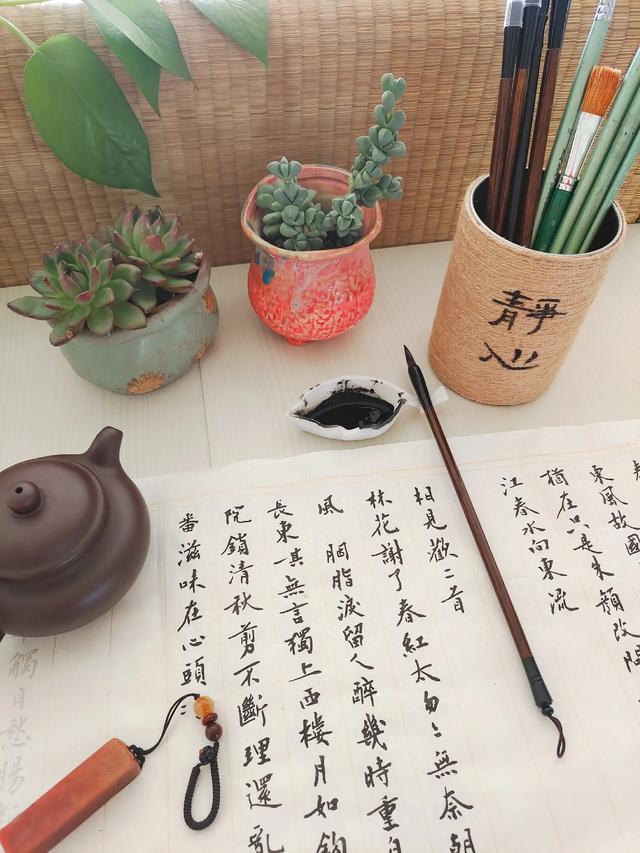 靜
心
東風故國
猶在只是朱顏改問
江春水向東流
相見歡二首
林花謝了春紅太匆〻無奈朝
風 胭脂淚留人醉幾時重自
長東 其無言獨上西樓月如鉤
院鎖清秋剪不斷理還亂
番滋味在心頭
觸目愁腸